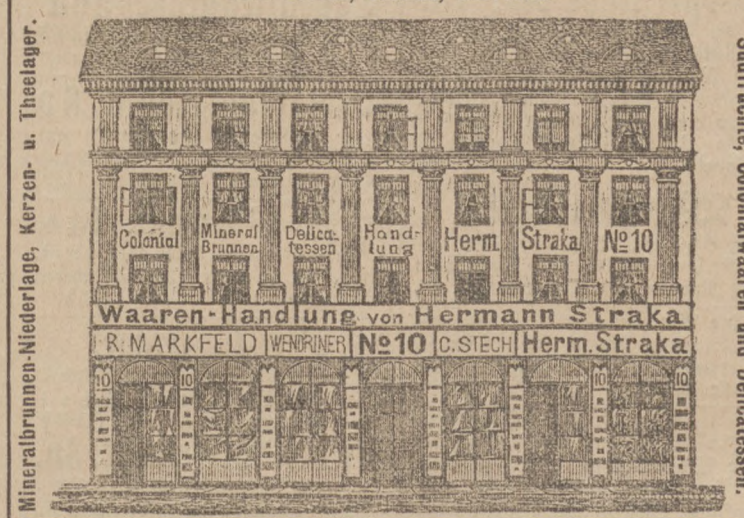 Mineralbrunnen-Niederlage, Kerzen- u. Theelager.
Colonial
Mineral
Brunnen
Delica-
tessen
Hand-
lung
Herm.
Straka
No 10
Waaren-Handlung von Hermann Straka
R. MARKFELD
WENDRINER
No 10
C. STECH
Herm. Straka
10
10
10
10
Colonialwaaren und Delicatessen.